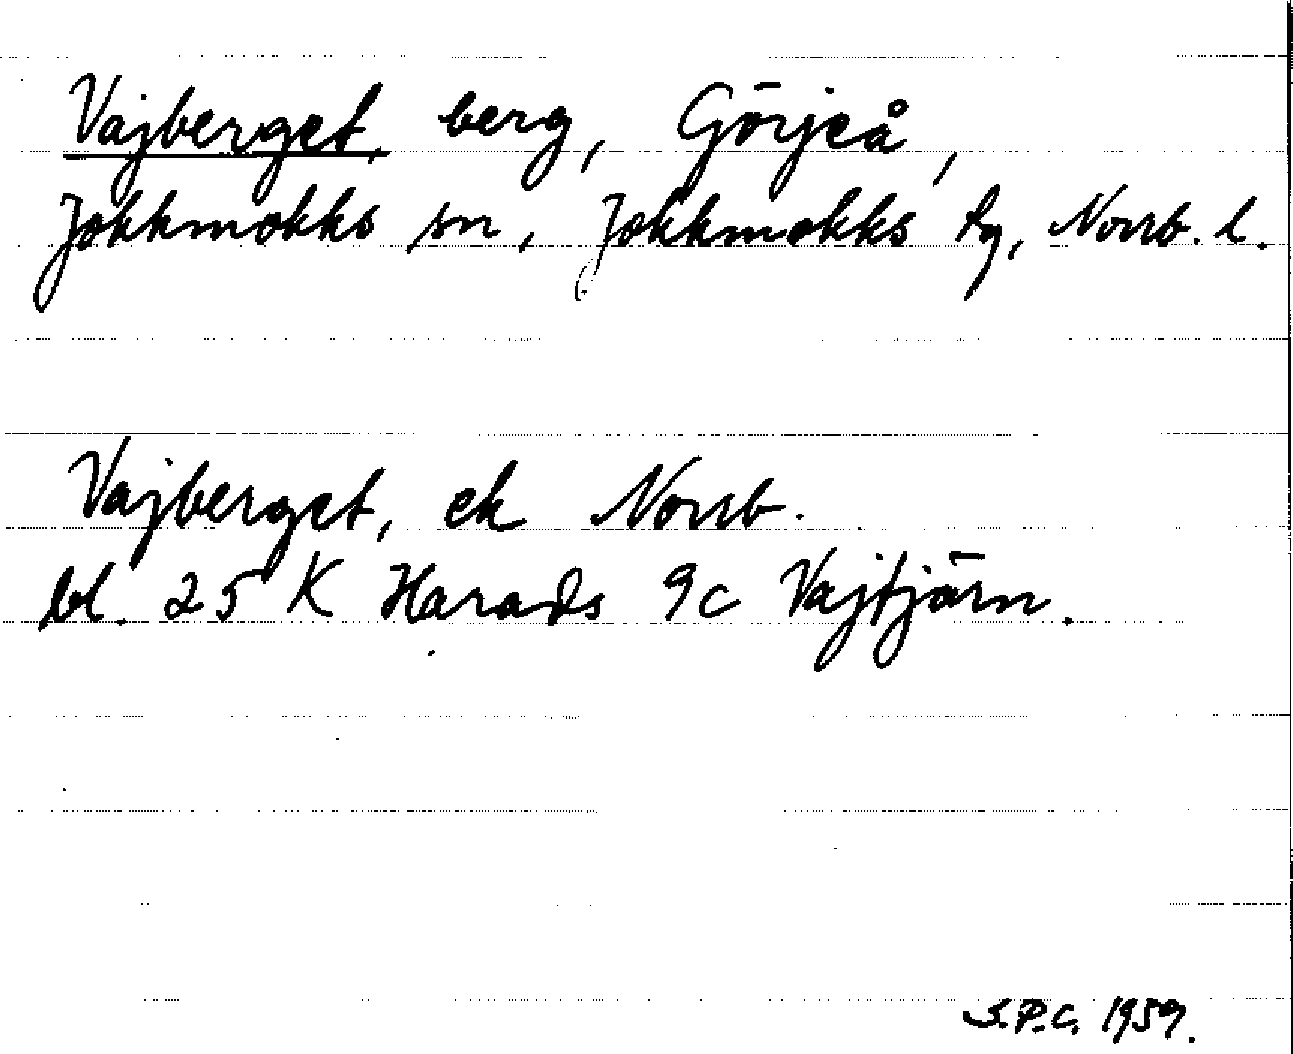 Vajberget, berg, Görjeå,
Jokkmokks sn, Jokkmokks tg, Norrb. l.
Vajberget, ek Norrb.
bl. 25 K Harads 9c Vajtjärn.
S.P.C. 1959.